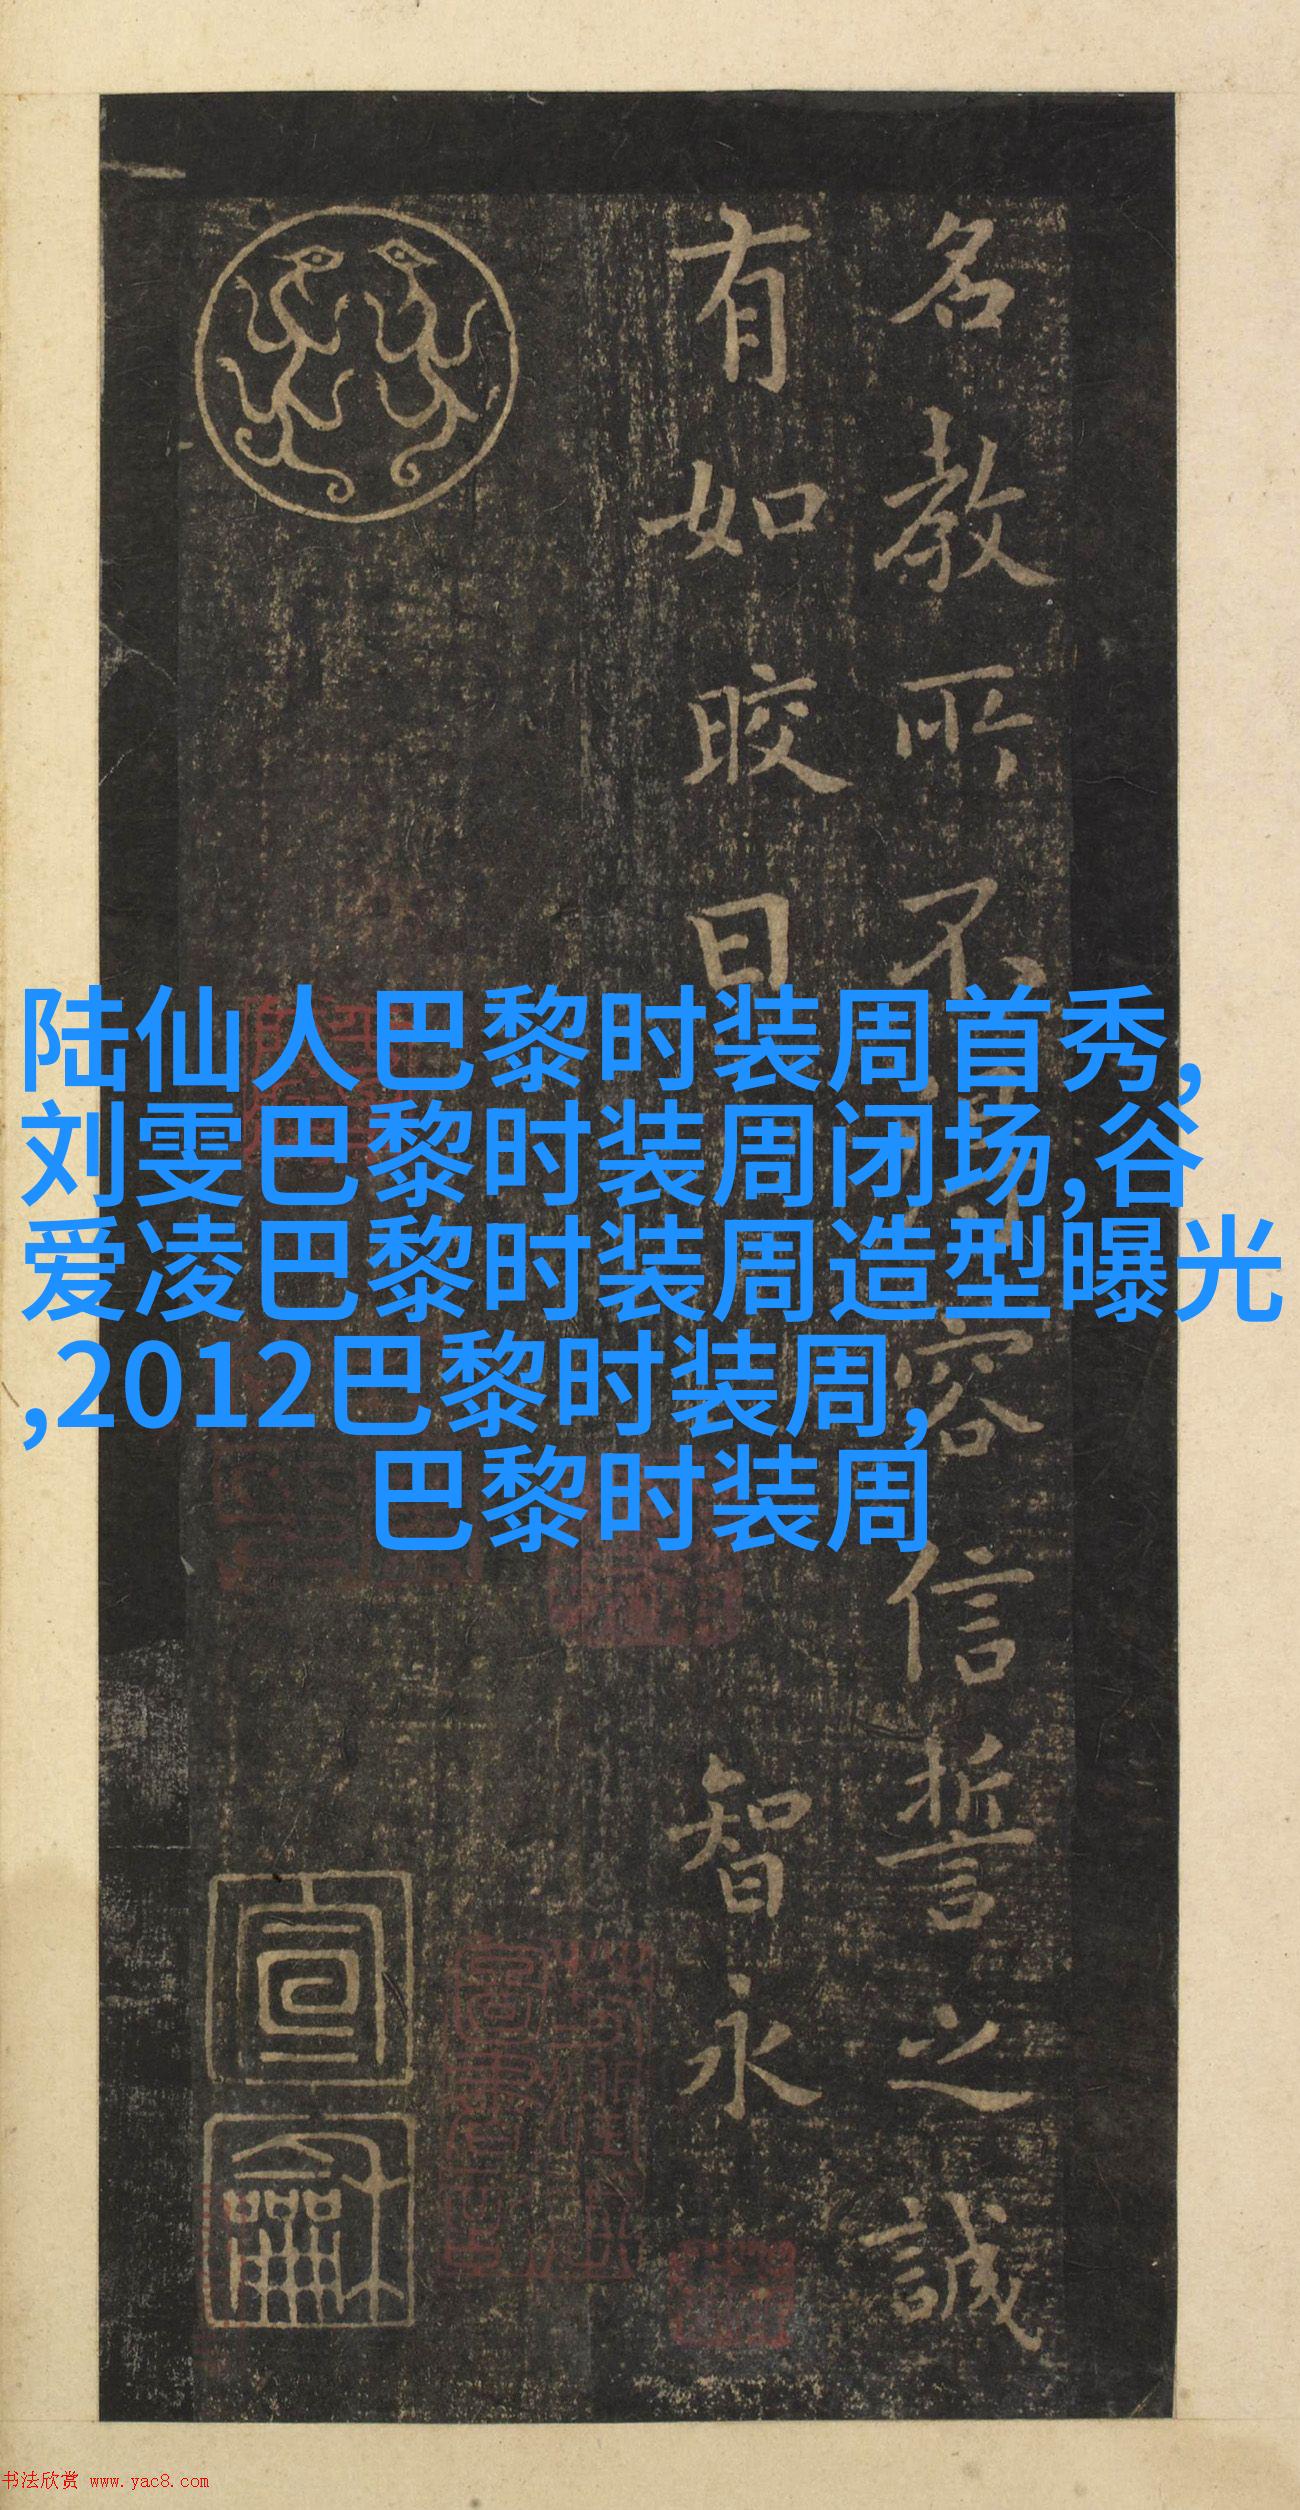 名教所不得容信誓之誠
有如晈日
智永
陆仙人巴黎时装周首秀,
刘雯巴黎时装周闭场,谷
爱凌巴黎时装周造型曝光
,2012巴黎时装周,
巴黎时装周
书法欣赏 www.yac8.com